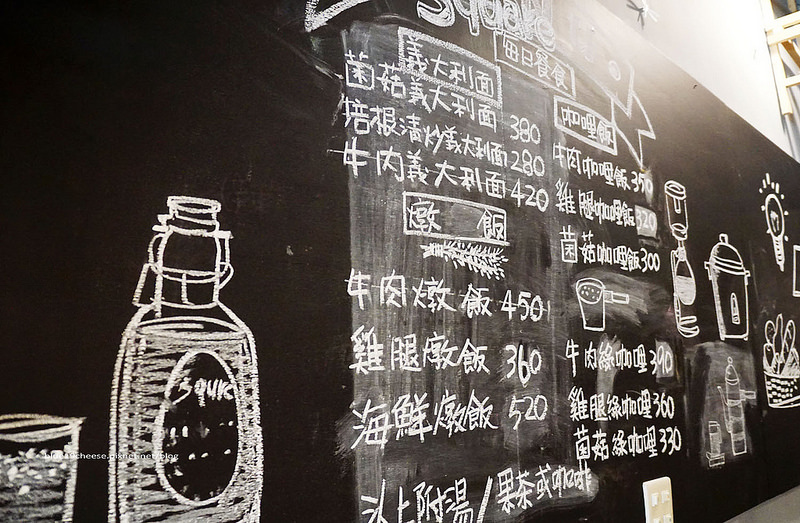 Square
每日餐食
義大利面
菌菇義大利面 380
培根清炒義大利面 280
牛肉義大利面 420
燉 飯
牛肉燉飯 450
雞腿燉飯 360
海鮮燉飯 520
以上附湯/果茶或咖啡
咖哩飯
牛肉咖哩飯 350
雞腿咖哩飯 320
菌菇咖哩飯 300
牛肉綠咖哩 390
雞腿綠咖哩 360
菌菇綠咖哩 330